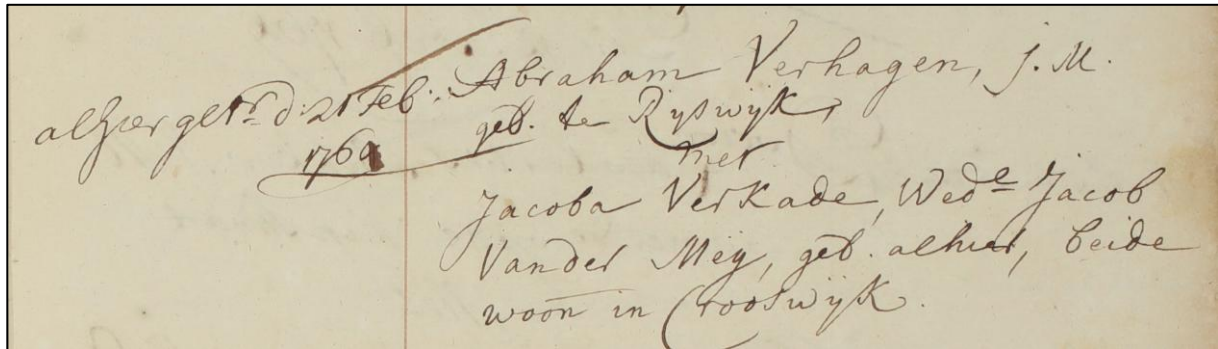 alhier getr. d. 21 Feb.
1769
Abraham Verhagen, J. M.
geb. te Ryswyk,
met
Jacoba Verkade, Wede Jacob
Vander Mey, geb. alhier, beide
woon in Crooswijk.